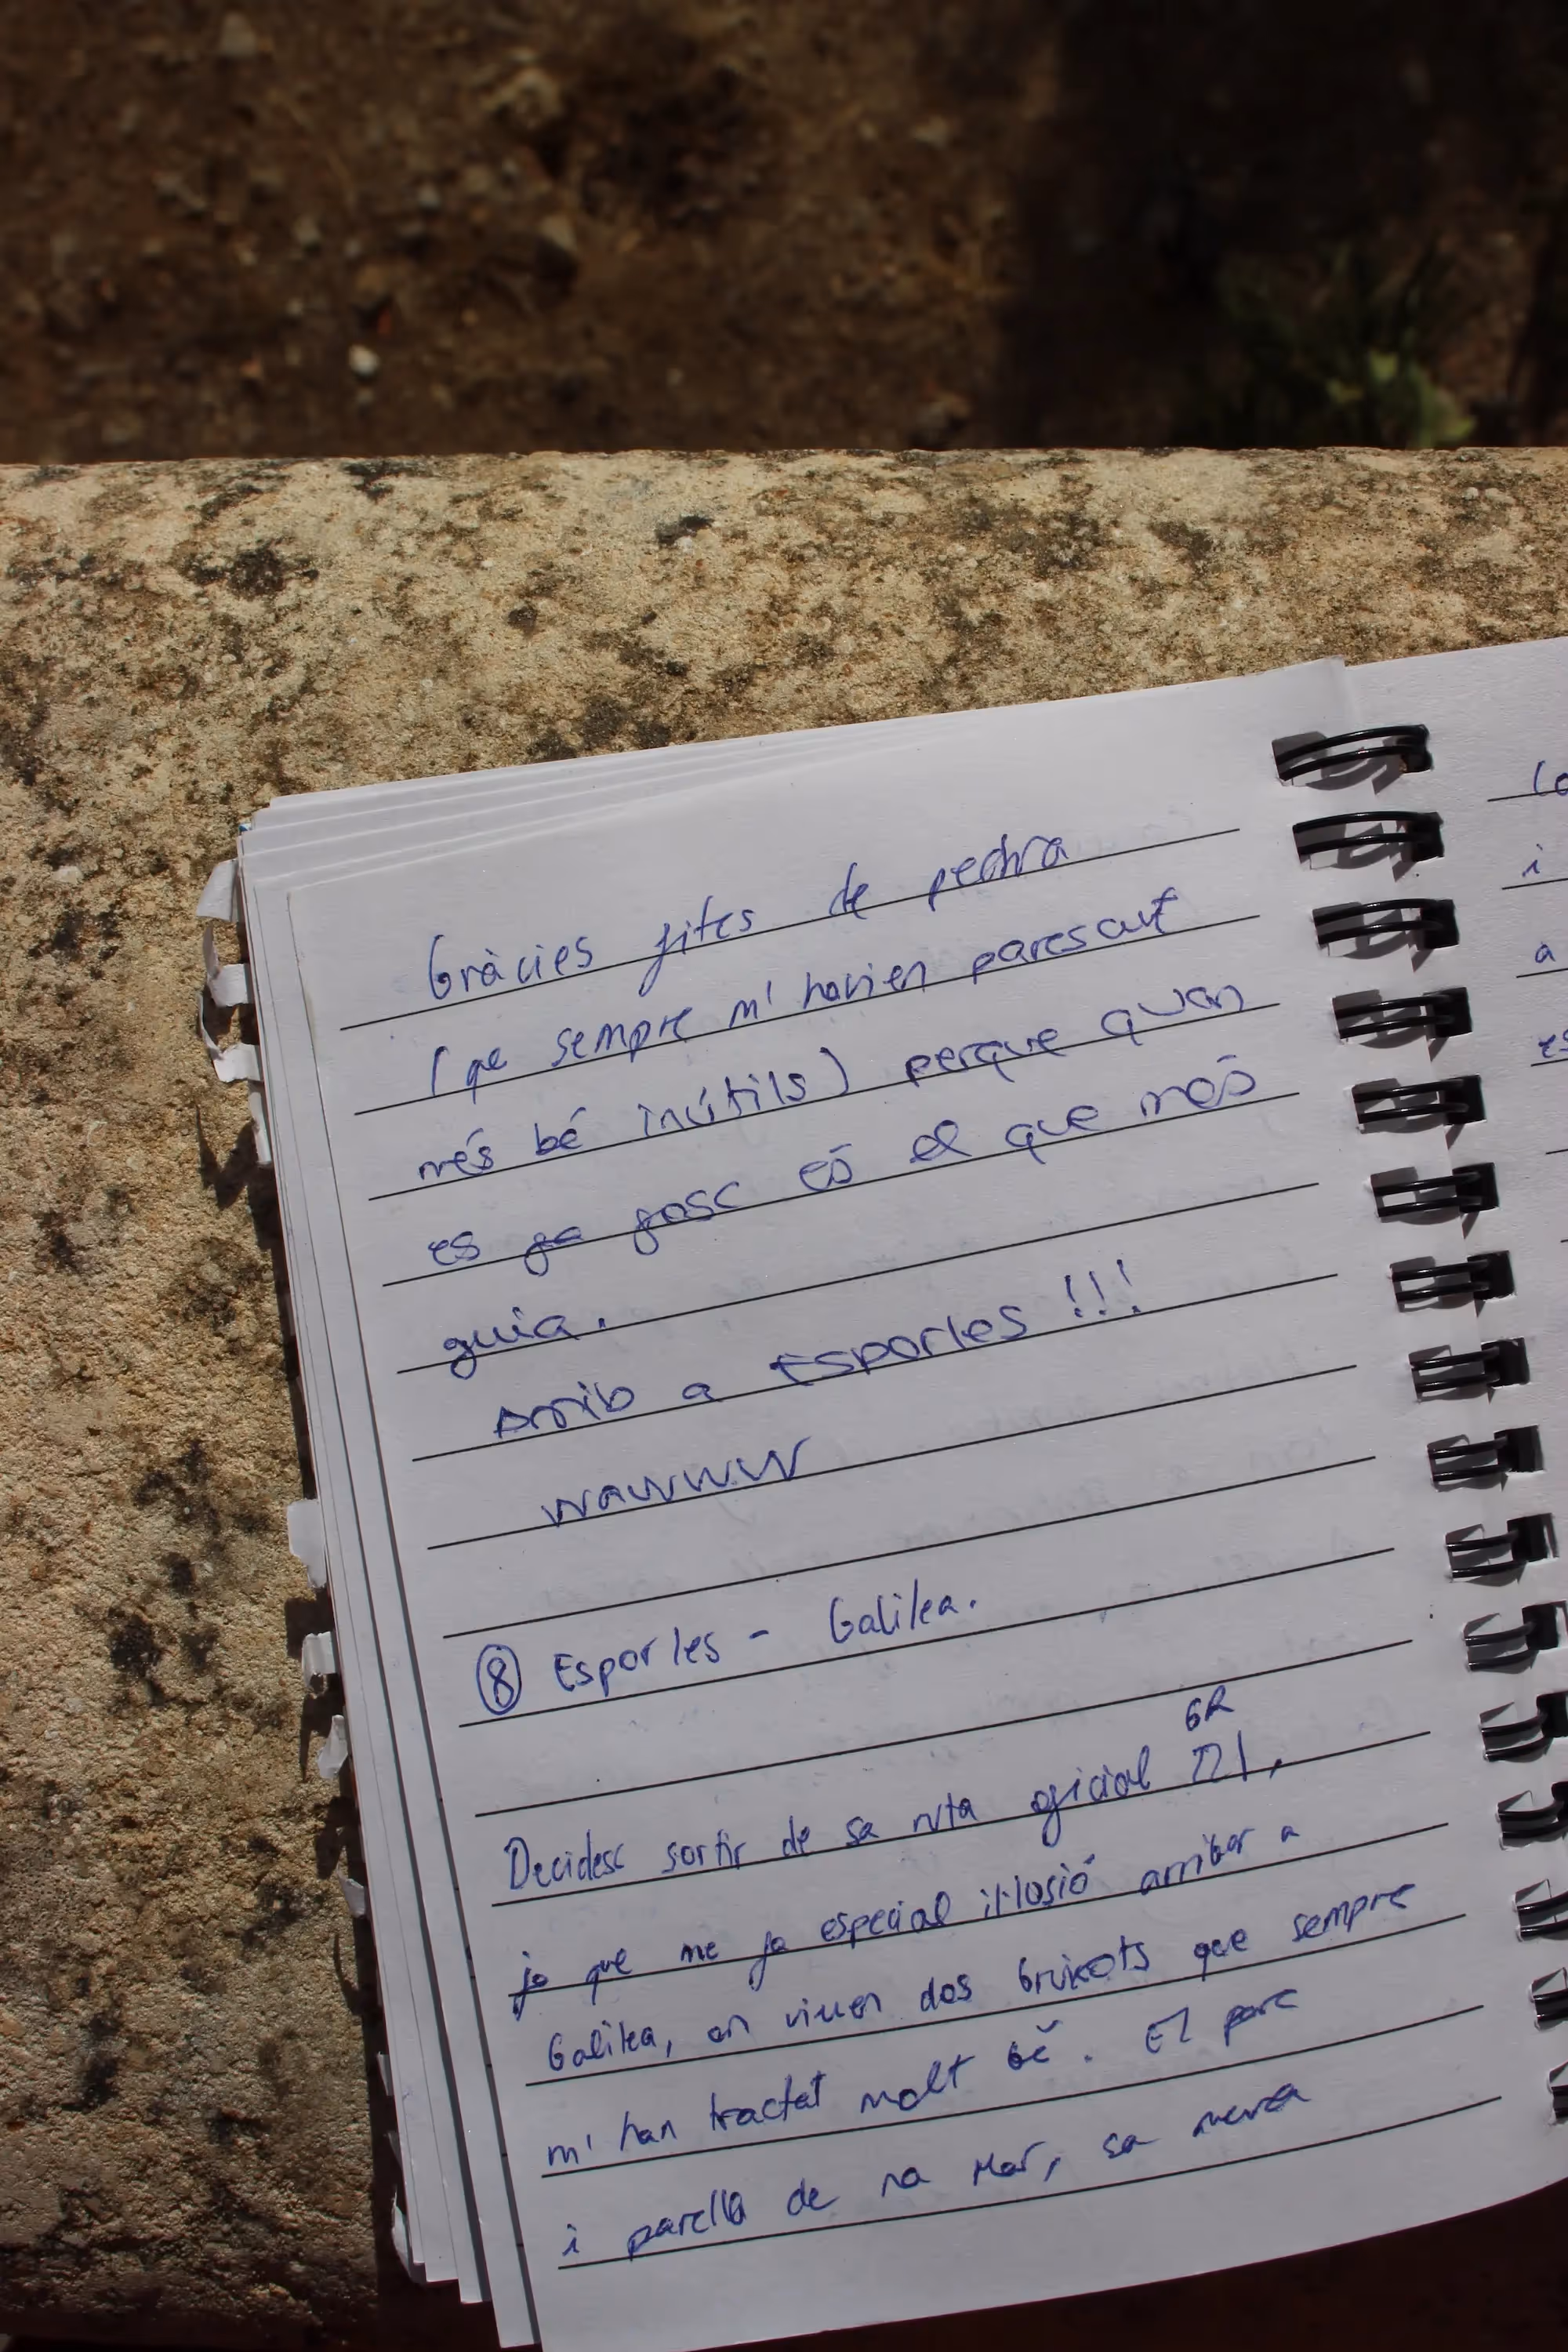 Gràcies fites de pedra
(que sempre m'havien parescut
més bé inútils) perque quan
es fa fosc és el que més
guia.
Arrib a Esporles !!!
WAWWW
⑧ Esporles - Galilea.
GR
Decidesc sortir de sa ruta oficial 221,
ja que me fa especial il·lusió arribar a
Galilea, on viuen dos bruixots que sempre
m'han tractat molt bé. El pare
i parella de na Mar, sa meva
i
a
es